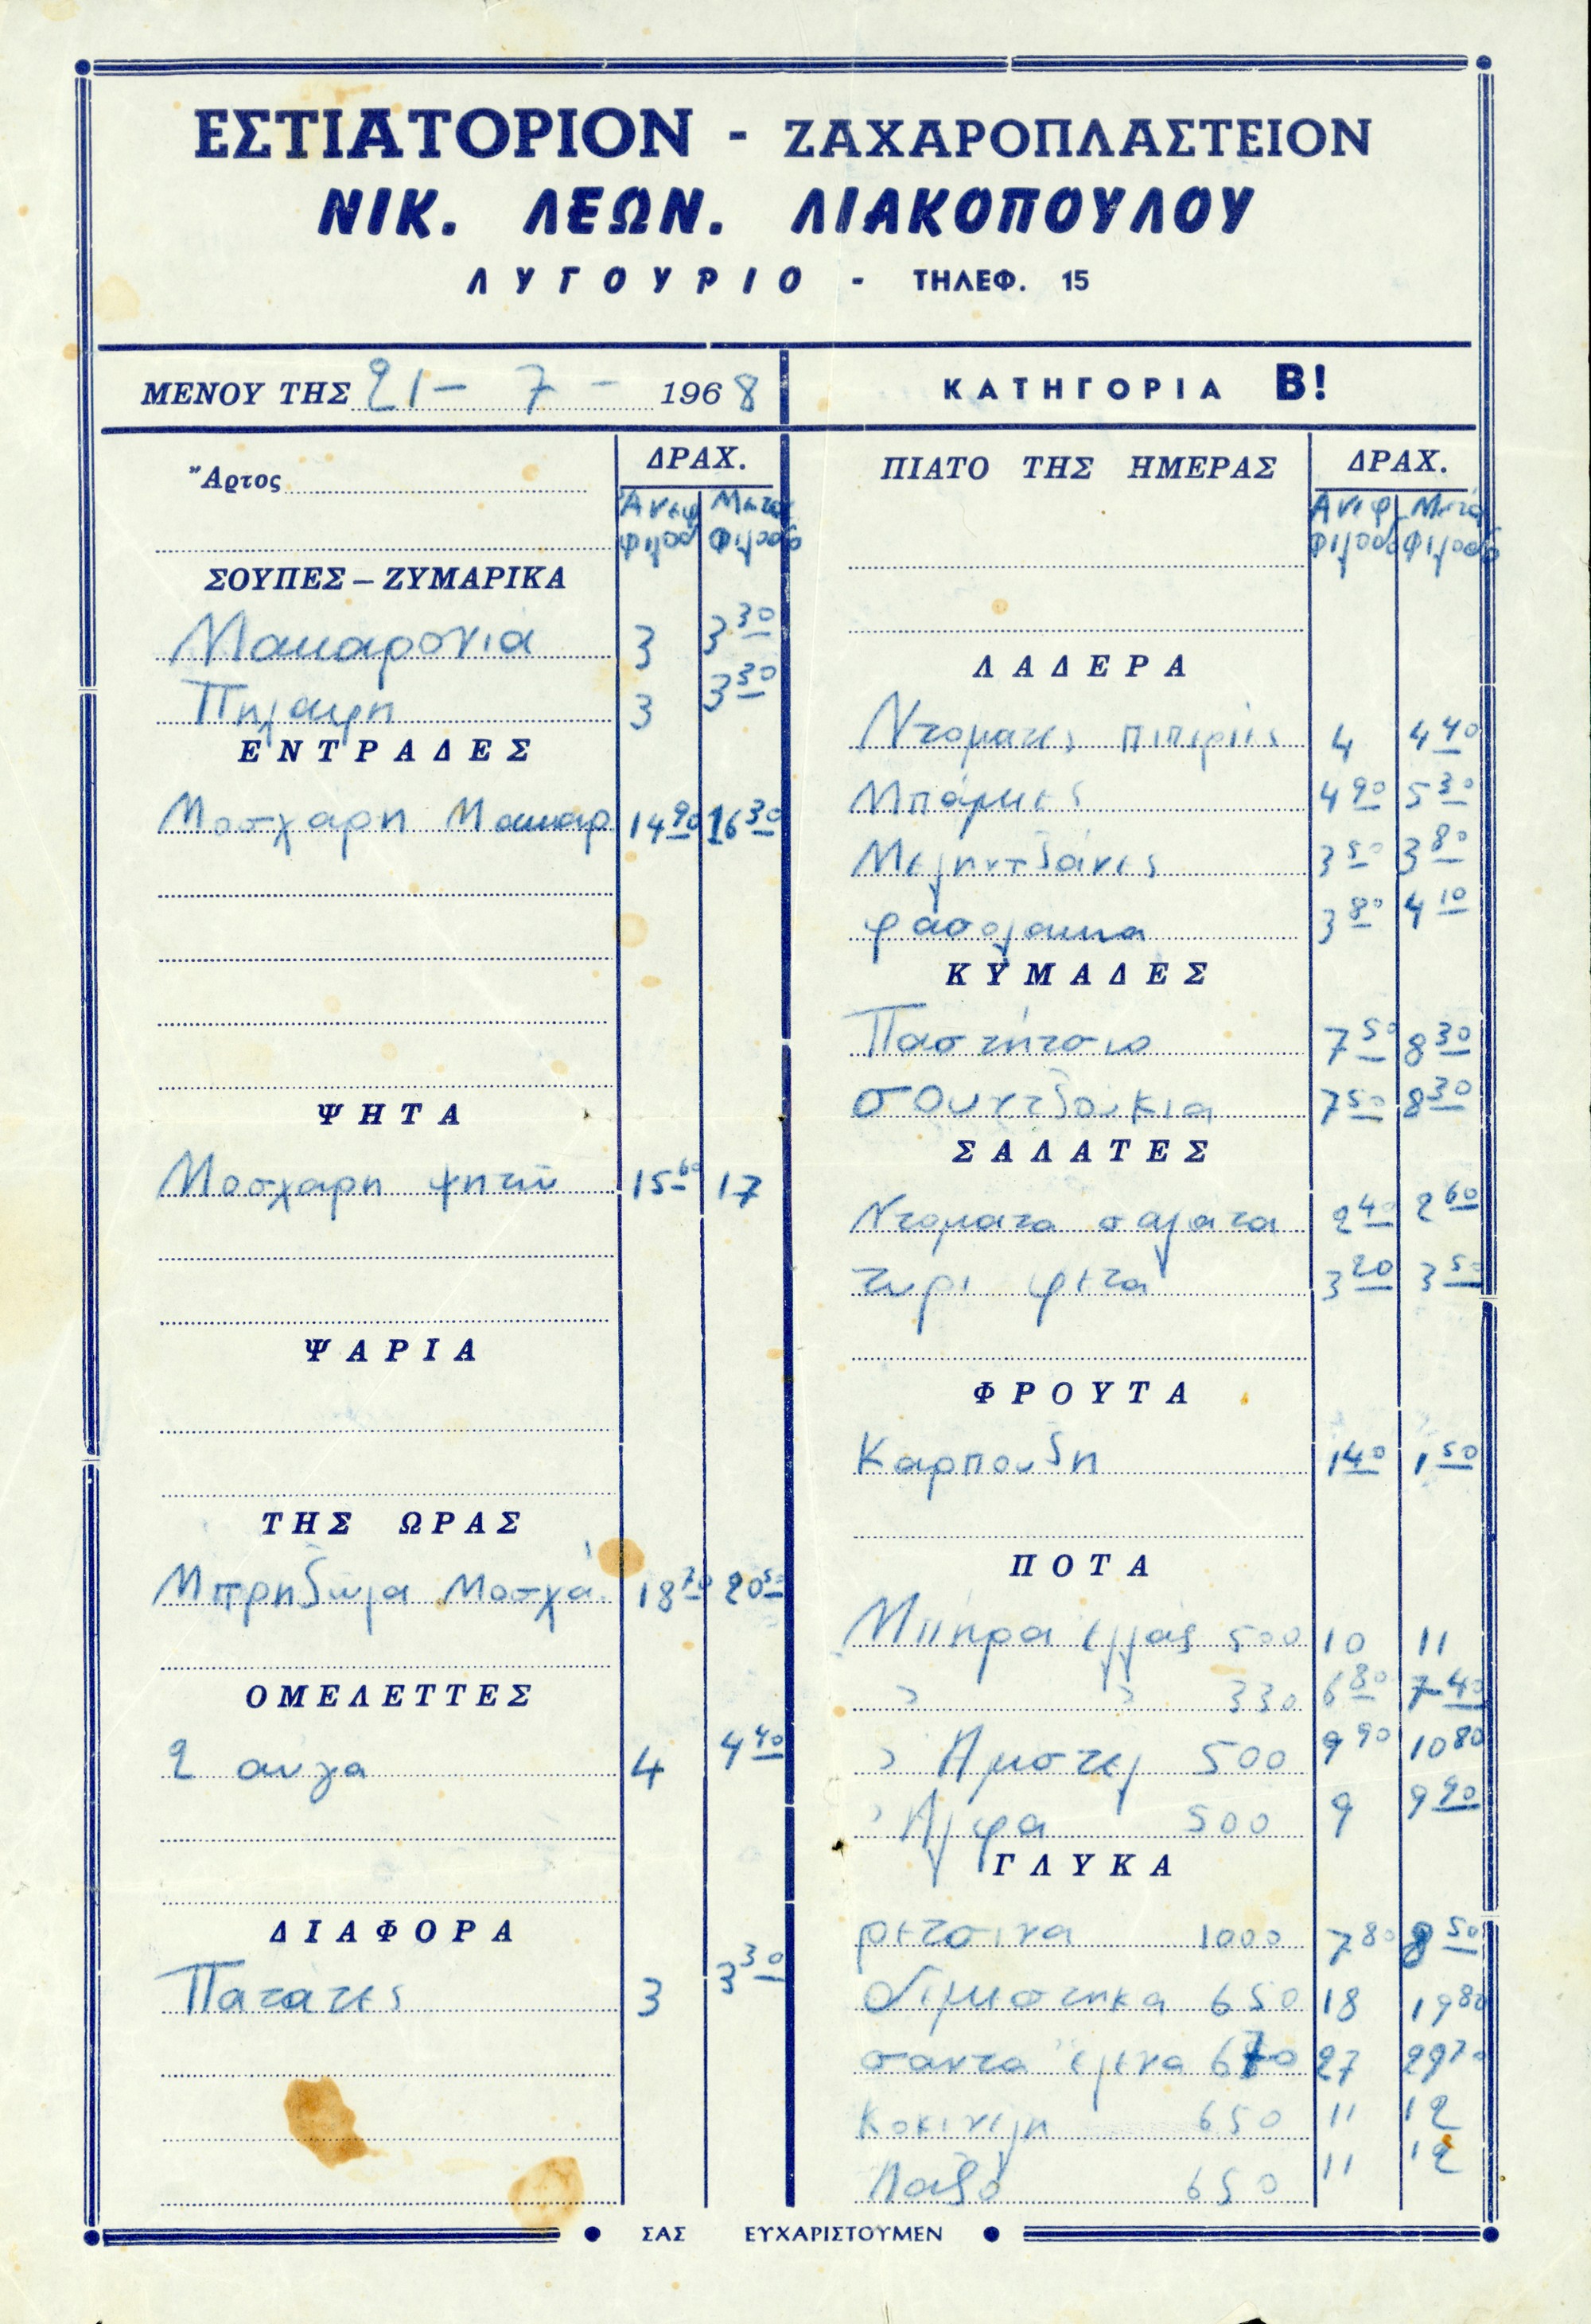 ΕΣΤΙΑΤΟΡΙΟΝ - ΖΑΧΑΡΟΠΛΑΣΤΕΙΟΝ
ΝΙΚ. ΛΕΩΝ. ΛΙΑΚΟΠΟΥΛΟΥ
ΛΥΓΟΥΡΙΟ - ΤΗΛΕΦ. 15
ΜΕΝΟΥ ΤΗΣ 21 - 7 - 1968
ΚΑΤΗΓΟΡΙΑ Β!
Ἄρτος
ΔΡΑΧ.
Ανευ Μετα
Φιλοδ Φιλοδ
ΣΟΥΠΕΣ – ΖΥΜΑΡΙΚΑ
Μακαρονια 3 3 30
Πηλαφη 3 3 30
ΕΝΤΡΑΔΕΣ
Μοσχαρη Μακαρ. 14 90 16 30
ΨΗΤΑ
Μοσχαρη ψητόν 15 60 17
ΨΑΡΙΑ
ΤΗΣ ΩΡΑΣ
Μπρηζωλα Μοσχά. 18 70 20 50
ΟΜΕΛΕΤΤΕΣ
2 αυγα 4 4 40
ΔΙΑΦΟΡΑ
Πατάτες 3 3 30
ΠΙΑΤΟ ΤΗΣ ΗΜΕΡΑΣ
ΔΡΑΧ.
Ανευ Μετά
Φιλοδ Φιλοδ
ΛΑΔΕΡΑ
Ντοματες πιπεριές 4 4 40
Μπάμιες 4 90 5 30
Μεληντζάνες 3 50 3 80
φασολακια 3 80 4 10
ΚΥΜΑΔΕΣ
Παστήτσιο 7 50 8 30
σουντζουκια 7 50 8 30
ΣΑΛΑΤΕΣ
Ντοματα σαλατα 2 40 2 60
τυρι φετα 3 20 3 50
ΦΡΟΥΤΑ
Καρπουζη 1 40 1 50
ΠΟΤΑ
Μπηρα ελλάς 500 10 11
» » 330 6 80 7 40
» Αμστελ 500 9 90 10 80
» Αλφα 500 9 9 90
ΓΛΥΚΑ
ρετσινα 1000 7 80 8 50
Διμεστηκα 650 18 19 80
σαντα έλενα 670 27 29 70
Κοκινέλη 650 11 12
650 11 12
ΣΑΣ ΕΥΧΑΡΙΣΤΟΥΜΕΝ